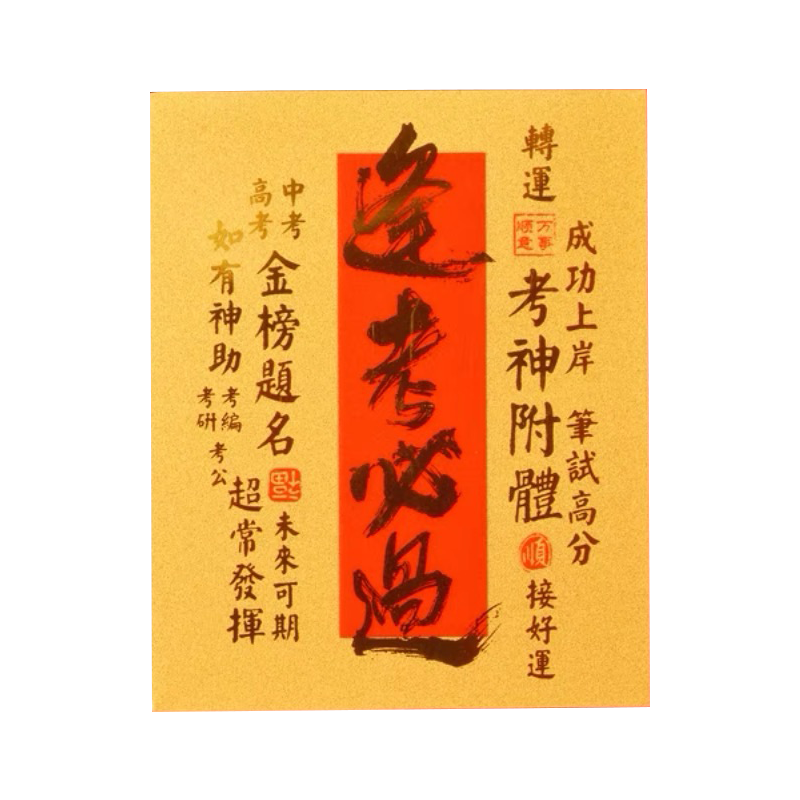 成功上岸 筆試高分
轉運
万事
順意
考神附體
順
接好運
逢考必過
中考
高考
金榜題名
福
未來可期
如有神助
考編
考研
考公
超常發揮